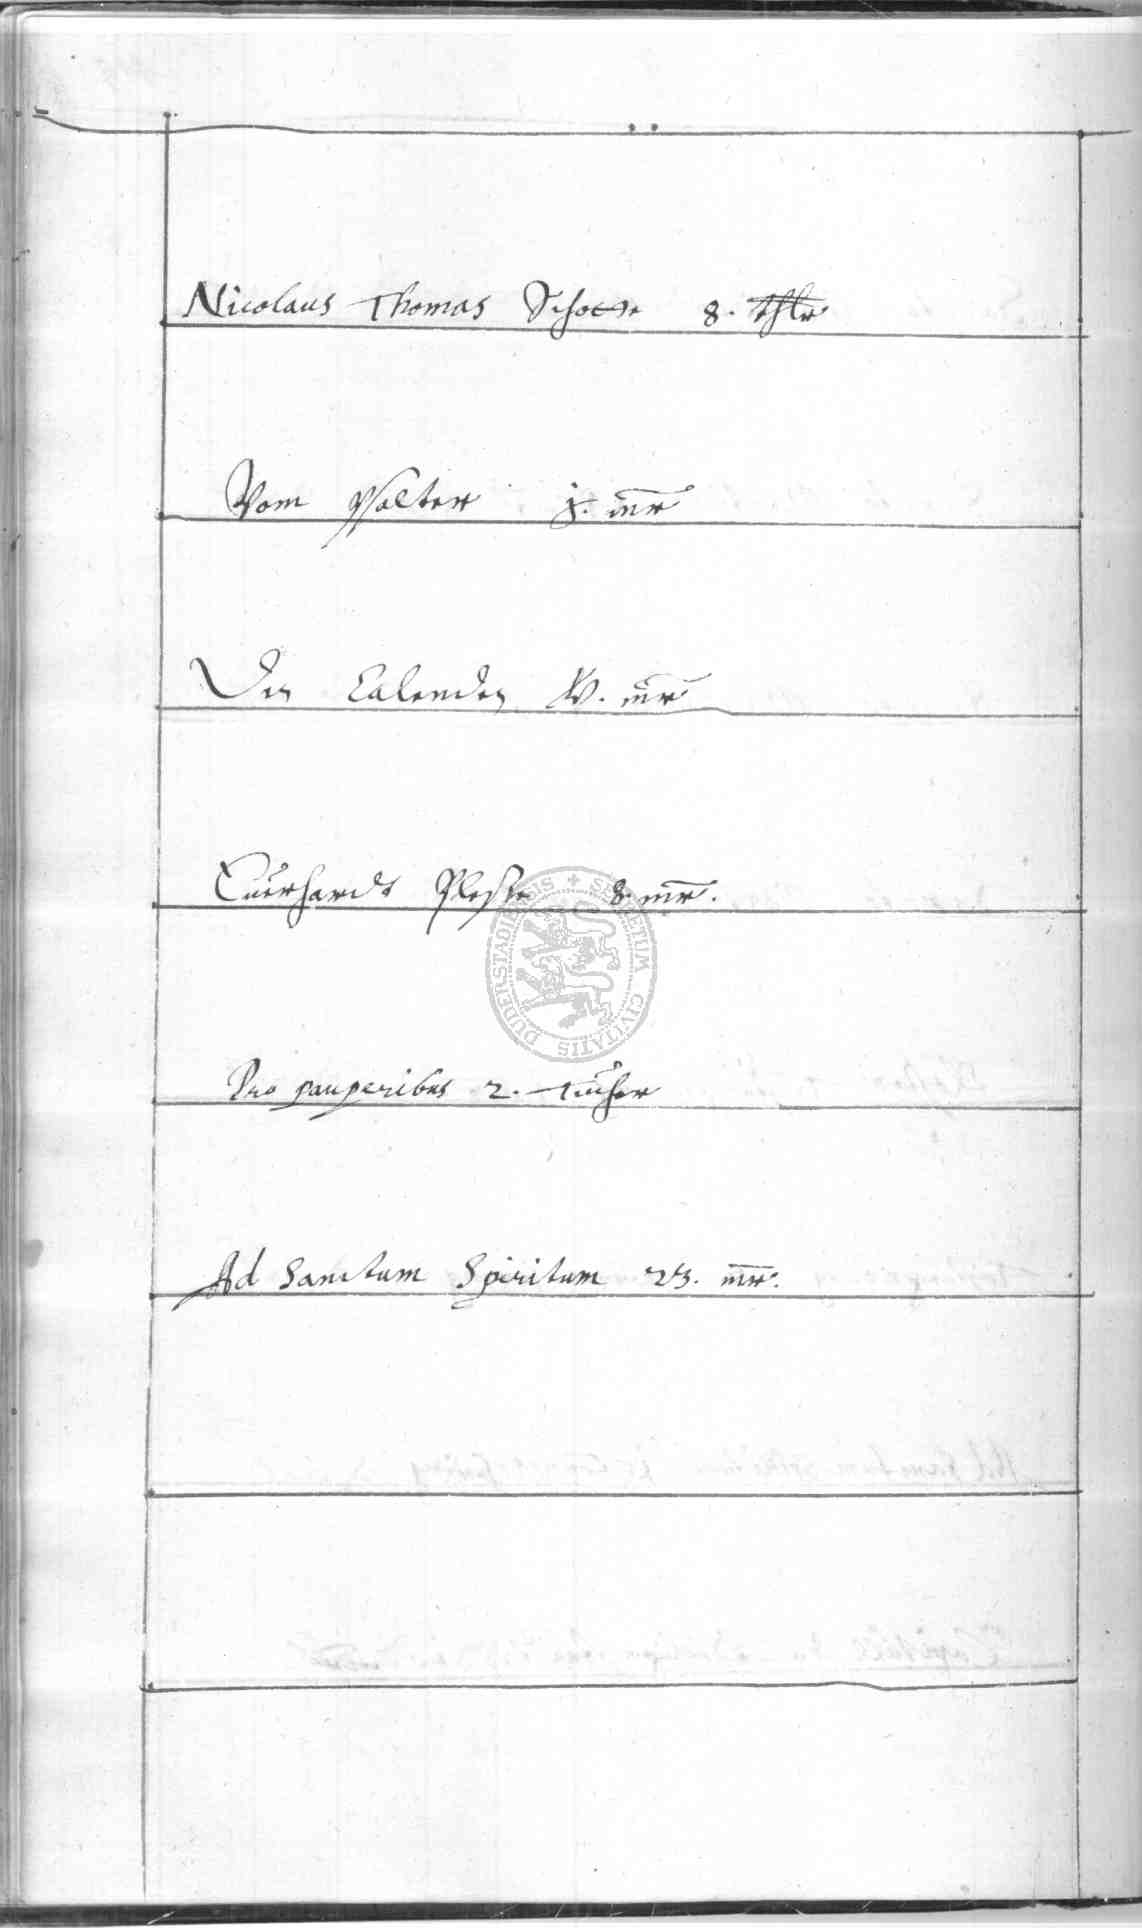 Nicolaus Thomas Schotte 8. thlr
Vom psalter j. mr
Den Calenden mr
Euerhardt Pleske 8. mr.
Pro pauperibus 2. tücher
Ad Sanctum Spiritum 23. mr.
SECRETUM CIVITATIS DUDERSTADIENSIS